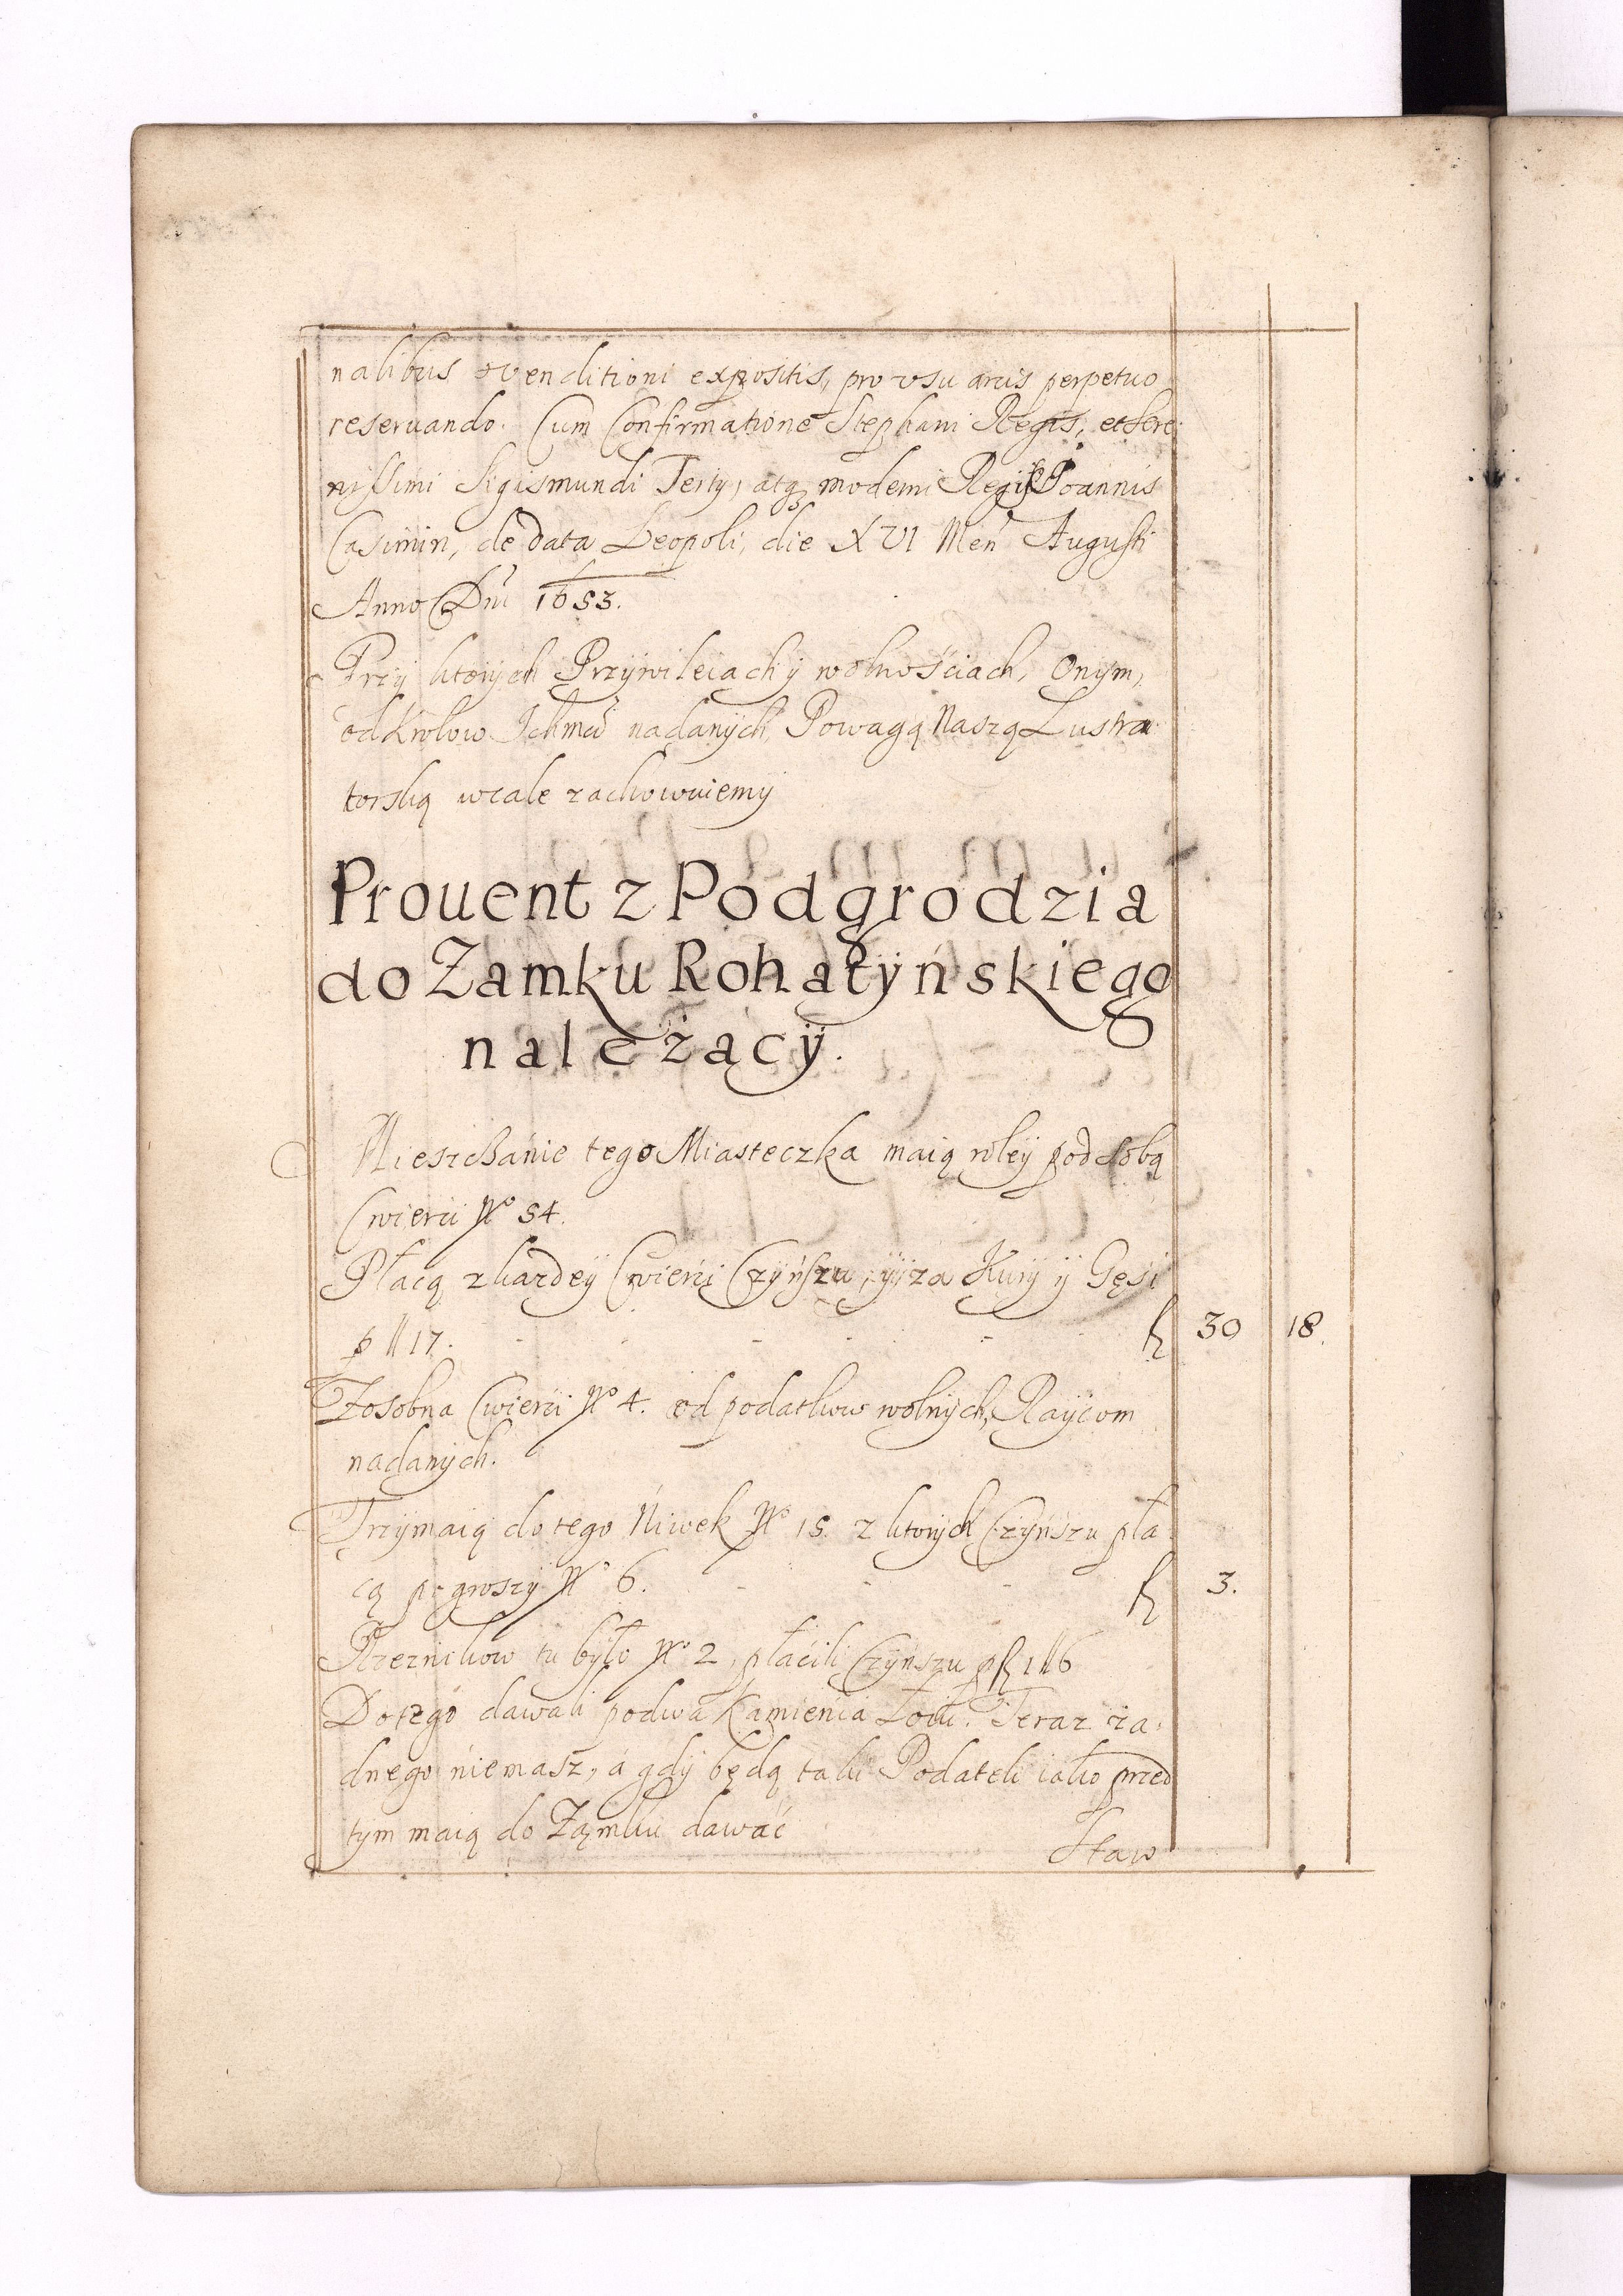 nalibus venditioni expositis, pro vsu arcis perpetuo
reseruando. Cum Confirmatione Stephani Regis, et Sere
nissimi Sigismundi Tertÿ, atq moderni Regis Joannis
Casimiri, de data Leopoli, die XVI Men Augusti
Anno Dni 1653.
Przÿ ktorÿch Przÿwileiach ÿ wolnościach, Onym,
od Krolow Ichmći nadanÿch, Powagą Naszą Lustra
torską wcale zachowuiemÿ
Prouent z Podgrodzia
do Zamku Rohatÿńskiego
należącÿ.
Mieszczanie tego Miasteczka maią roleÿ pod sobą
Cwierci No 54.
Płacą z kazdeÿ Cwierci Czÿnszu, ÿ za Kurÿ ÿ Gęsi
p ll 17. - - - - fl 30 18.
Zosobna Cwierci No 4. od podatkow wolnÿch, Raÿcom
nadanÿch.
Trzÿmaią do tego Niwek No 15. z ktorÿch Czÿnszu pła
cą po groszÿ No 6. - - - fl 3.
Rzeznikow tu bÿło No 2, płacili Czÿnszu p fl 1 ll 6
Do tego dawali po dwa Kamienia Łoiu. Teraz ża
dnego niemasz, a gdÿ będą taki Podatek iako przed
tym maią do Zamku dawać
Staw